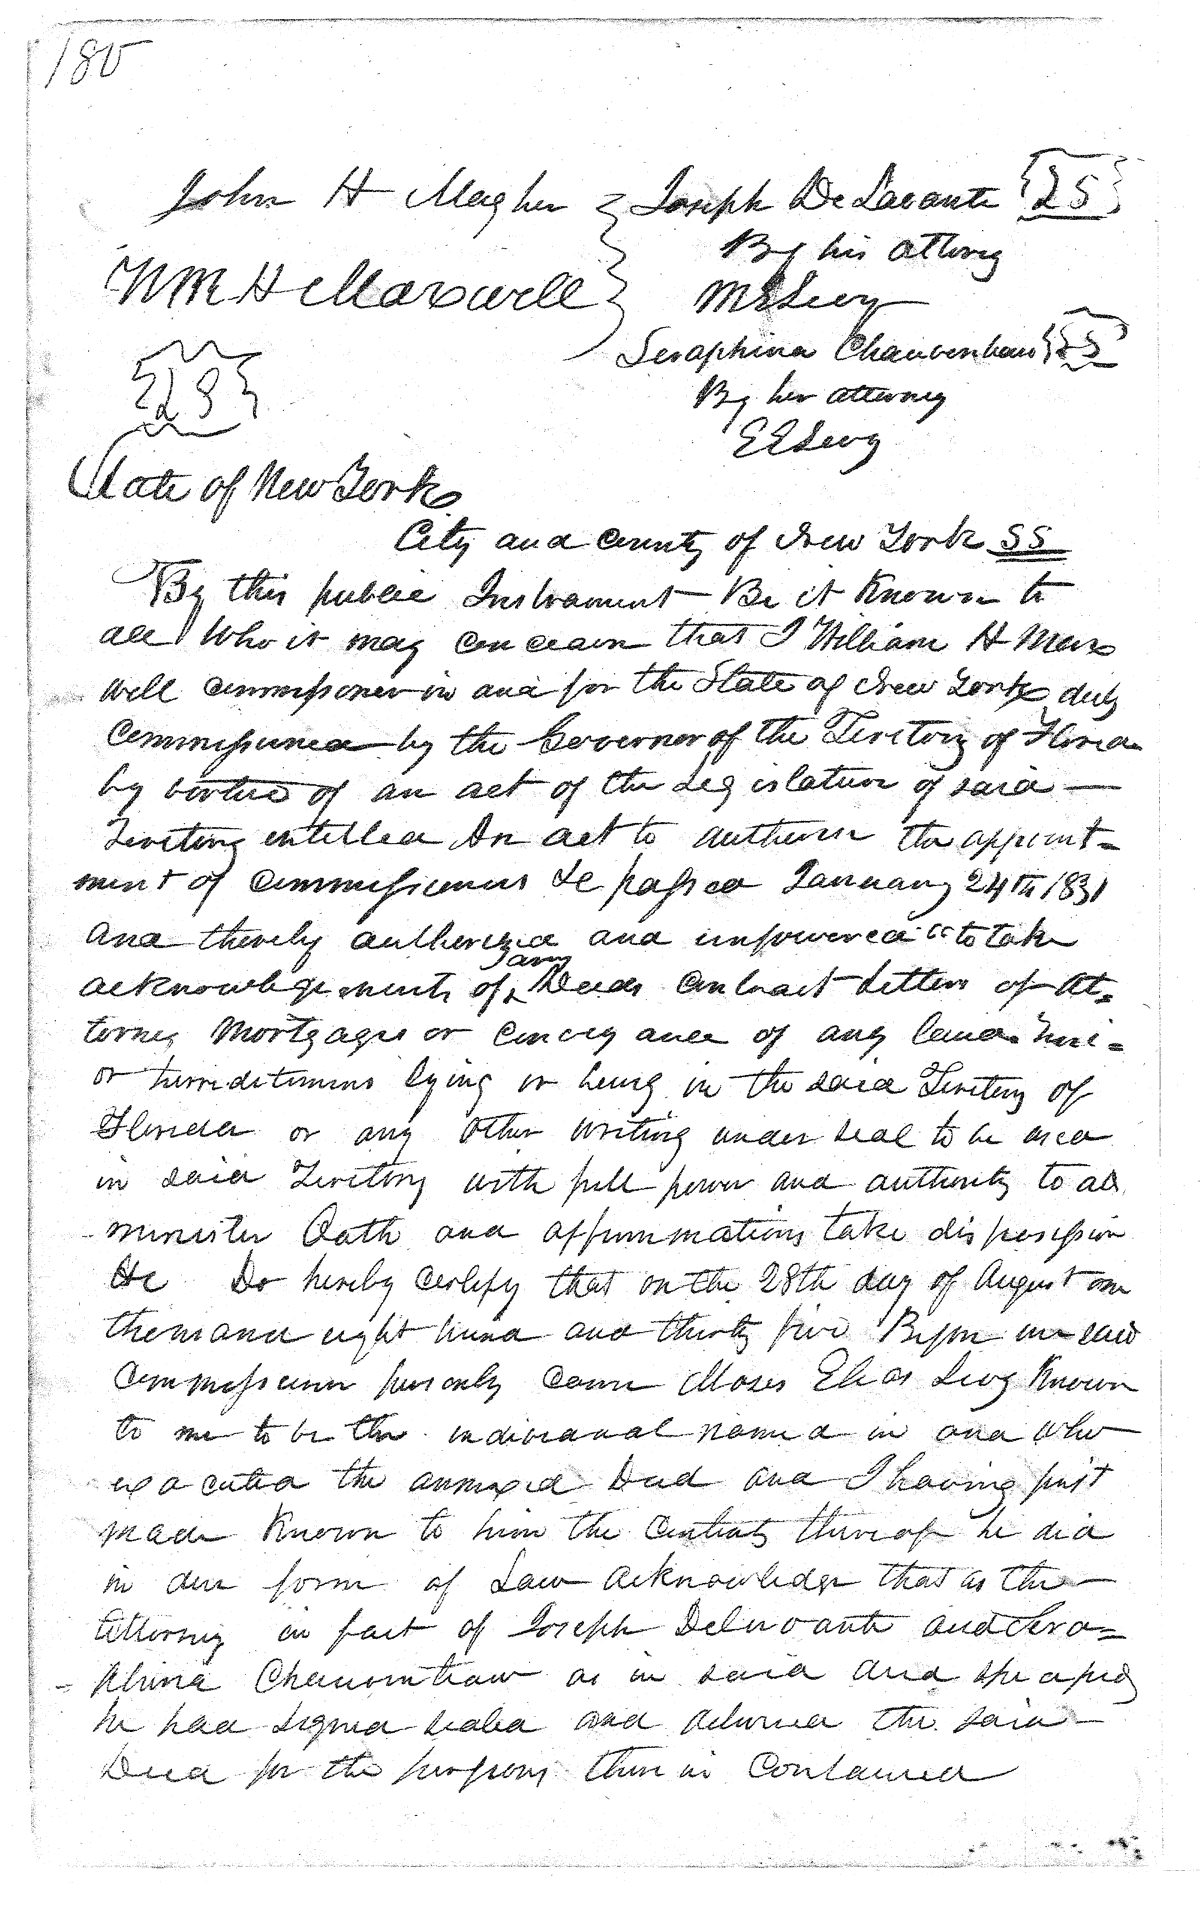 180
John H Magher } Joseph De Lavante {LS}
By his attorney
Wm H Maxwell } M E Levy
Seraphina Chauvenhaus {LS}
{LS} By her attorney
E E Levy
State of New York
City and County of New York SS
By this public Instrument Be it Known to
all Who it may concearn that I William H Max
well commissioner in and for the State of New York duly
Commissioned by the Governor of the Teritory of Florida
by virtue of an act of the Legislature of said
Teritory entitled An act to authorise the appoint=
ment of commissioners &c passed January 24th 1831
and thereby autherized and impowered "to take
acknowledgements of any Deeds Contract Letters of At=
torney Mortgages or Conveyance of any land
or herreditements lying or being in the said Teritory of
Florida or any other writing under seal to be used
in said Teritory with full power and authority to ad
minister Oath and affirmations take
&c Do hereby certify that on the 28th day of August one
thousand eight hund and thirty five Before me said
Commissioner personly came Moses Elias Levy Known
to me to be the individual named in and who
executed the annexed Deed and I having first
made Known to him the Contents thereof he did
in due form of Law acknowledge that as the
Attorney in fact of Joseph Delevante and Sera=
phina as in said deed
he had signed sealed and delivered the said
Deed for the purposes there in Contained